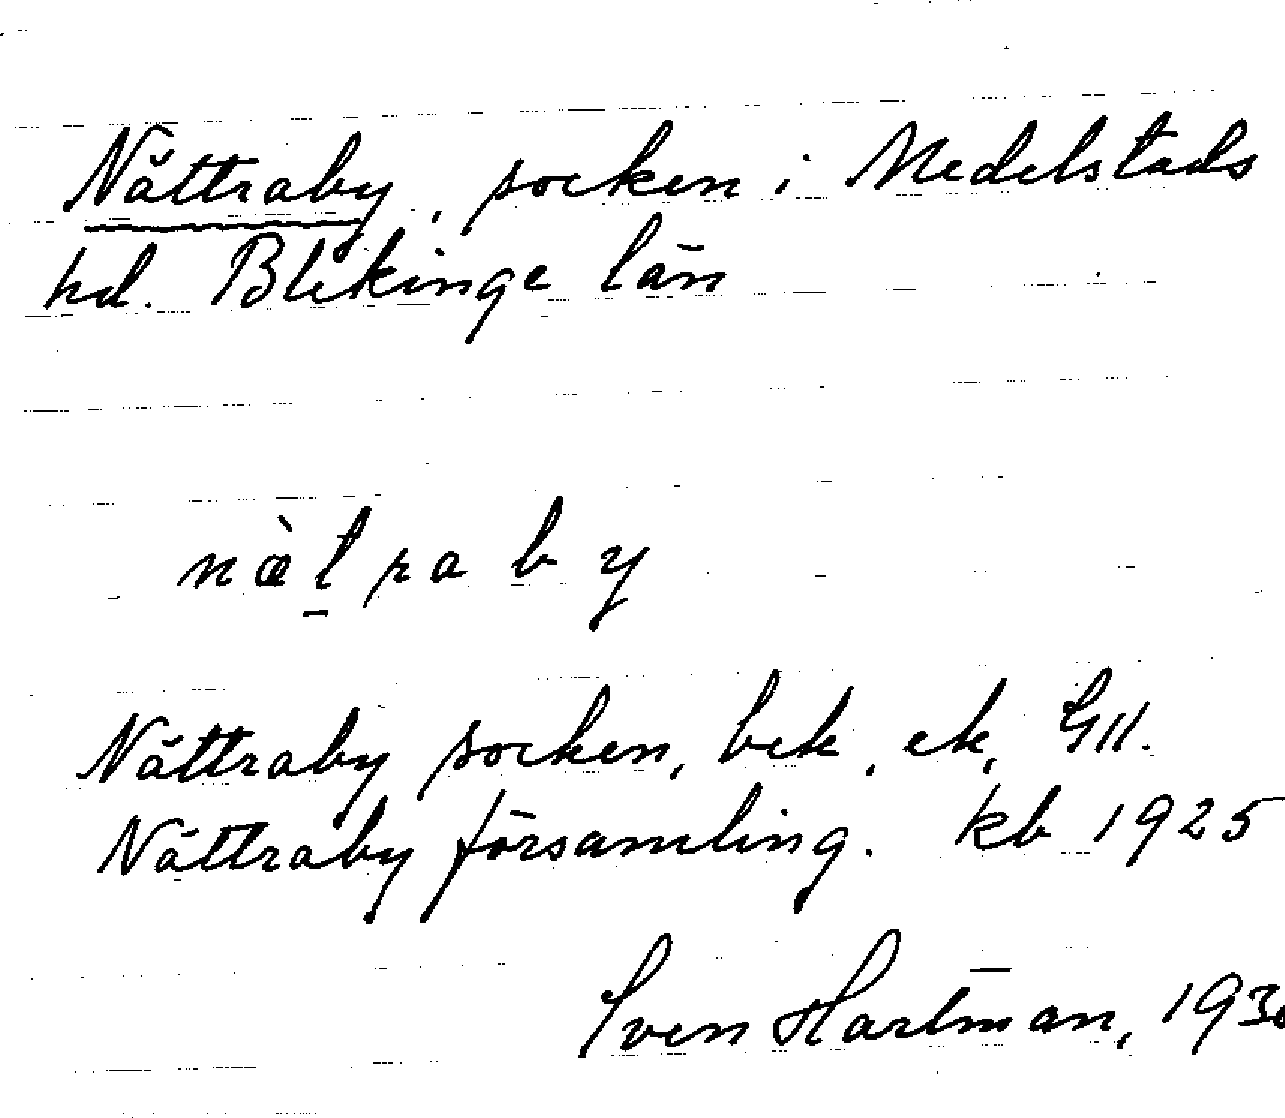 Nättraby, socken i Medelstads
hd. Blekinge län
næ̀t̠raby
Nättraby socken, bek, ek,
Nättraby församling. kb 1925
Sven Hartman,